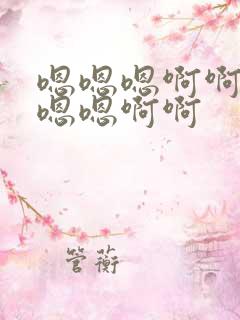 嗯嗯嗯啊啊
嗯嗯啊啊
管蘅